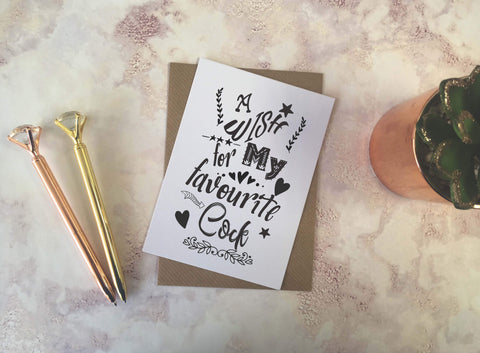 A
Wish
for My
favourite
Cock